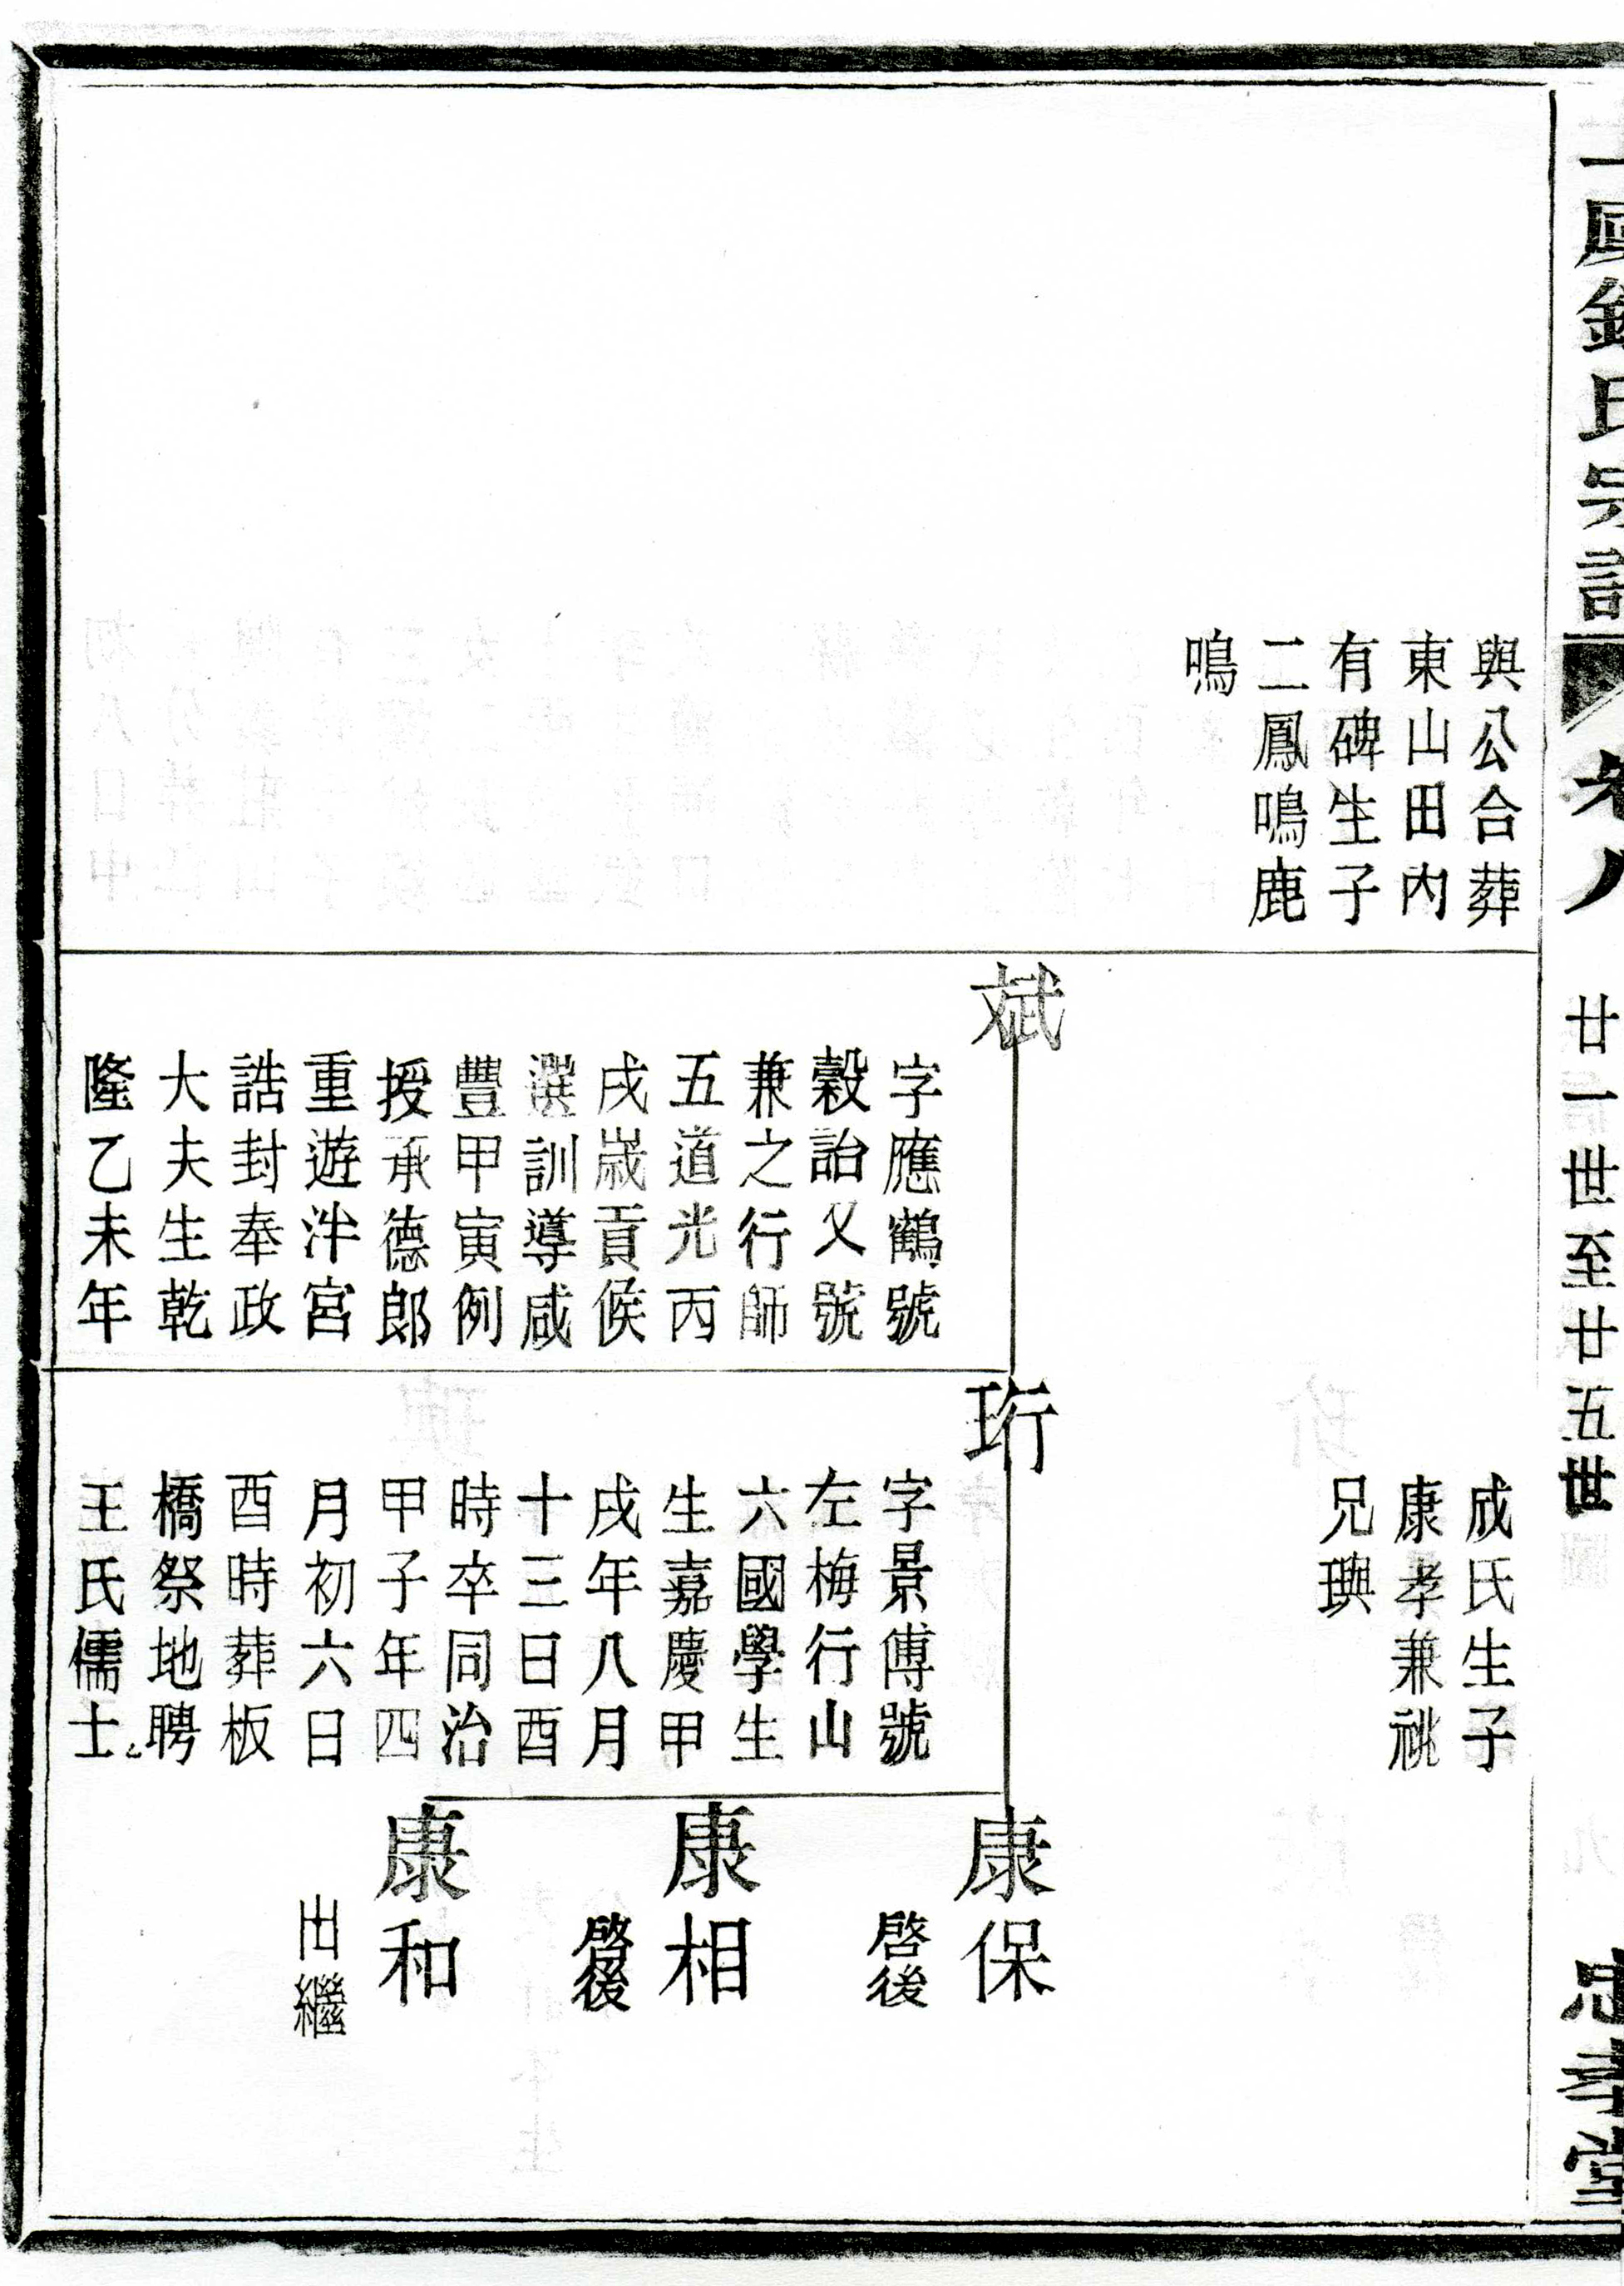 氏宗譜
卷八
廿一世至廿五世
忠孝堂
與公合葬
東山田內
有碑生子
二鳳鳴鹿
鳴
斌
字應鶴號
穀詒又號
兼之行師
五道光丙
戌歲貢候
選訓導咸
豐甲寅例
授承德郎
重遊泮宮
誥封奉政
大夫生乾
隆乙未年
成氏生子
康孝兼祧
兄璵
珩
字景傅號
左梅行山
六國學生
生嘉慶甲
戌年八月
十三日酉
時卒同治
甲子年四
月初六日
酉時葬板
橋祭地聘
王氏儒士
康保
啓後
康相
啓後
康和
出繼